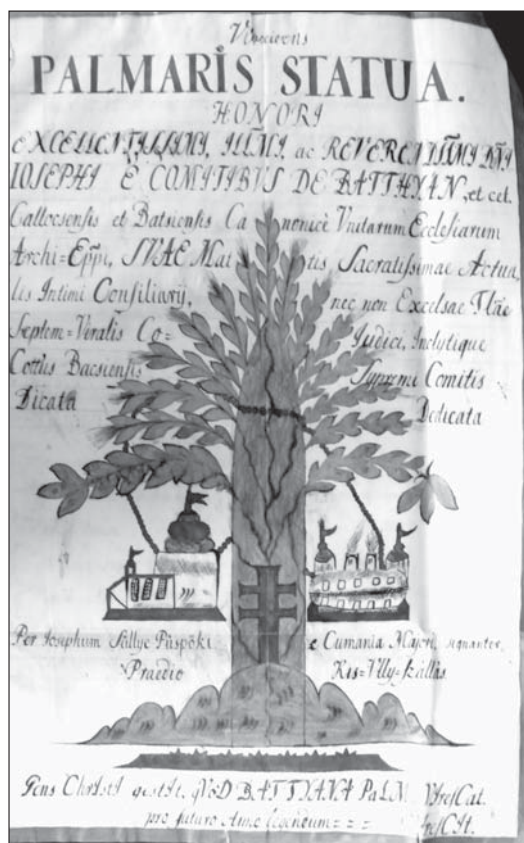 PALMARIS STATUA.
HONORI
EXCELLENTISSIMI, ILLMI, ac REVERENDISSIMI DNI
IOSEPHI E COMITIBVS DE BATTHYAN, et cet.
Collocsensis et Batsiensis Canonicè Vnitarum Ecclesiarum
Archi=Eppi, SVAE Mattis Sacratissimae Actua,
lis Intimi Consiliarij, nec non Excelsae Tlae
Septem=Viralis Co= Judici, Inclytique
Cottus Bacsiensis Supremi Comitis
Dicata Dedicata
Per Iosephum Süllye Püspöki e Cumania Majori, signanter
Praedio Kis=Vlly=kállas
Gens ChrIstI gestIt, qVoD BATTYANA PaLM VIresCat.
pro futuro Anno legendum = = = VIresCIt.